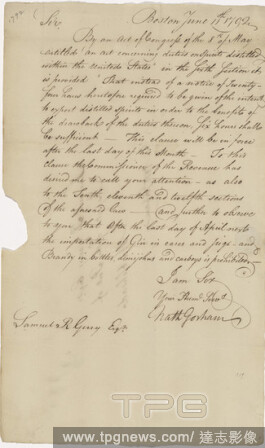 1792
Boston June 11th 1792
Sir,
By an Act of Congress of the 8th of May
entitled "an act concerning duties on Spirits distilled
within the United States" in the Sixth Section it
is provided "That instead of a notice of Twenty-
four hours heretofore required to be given of the intent
to export distilled Spirits in order to the benefit of
the drawback of the duties thereon, Six hours shall
be sufficient — This clause will be in force
after the last day of this Month — To this
clause the Commissioner of the Revenue has
desired me to call your attention — as also
to the Tenth, eleventh and twelfth sections
of the aforesaid law — and further to observe
to you that After the last day of April next
the importation of Gin in cases and jugs - and
Brandy in bottles, and carboys is prohibited
I am Sir
Your
Nath Gorham
Samuel R Gerry Esqr.
TPG
www.tpgnews.com / 達志影像